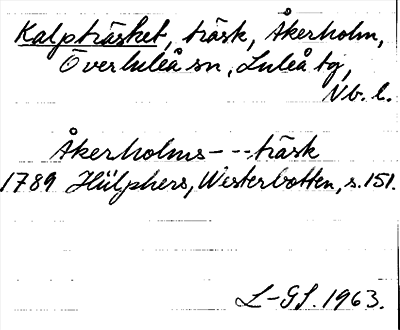 Kalpträsket, träsk, Åkerholm,
Överluleå sn, Luleå tg,
Nb. l.
Åkerholms- --träsk
1789 Hülphers, Westerbotten, s. 151.
L-GS. 1963.